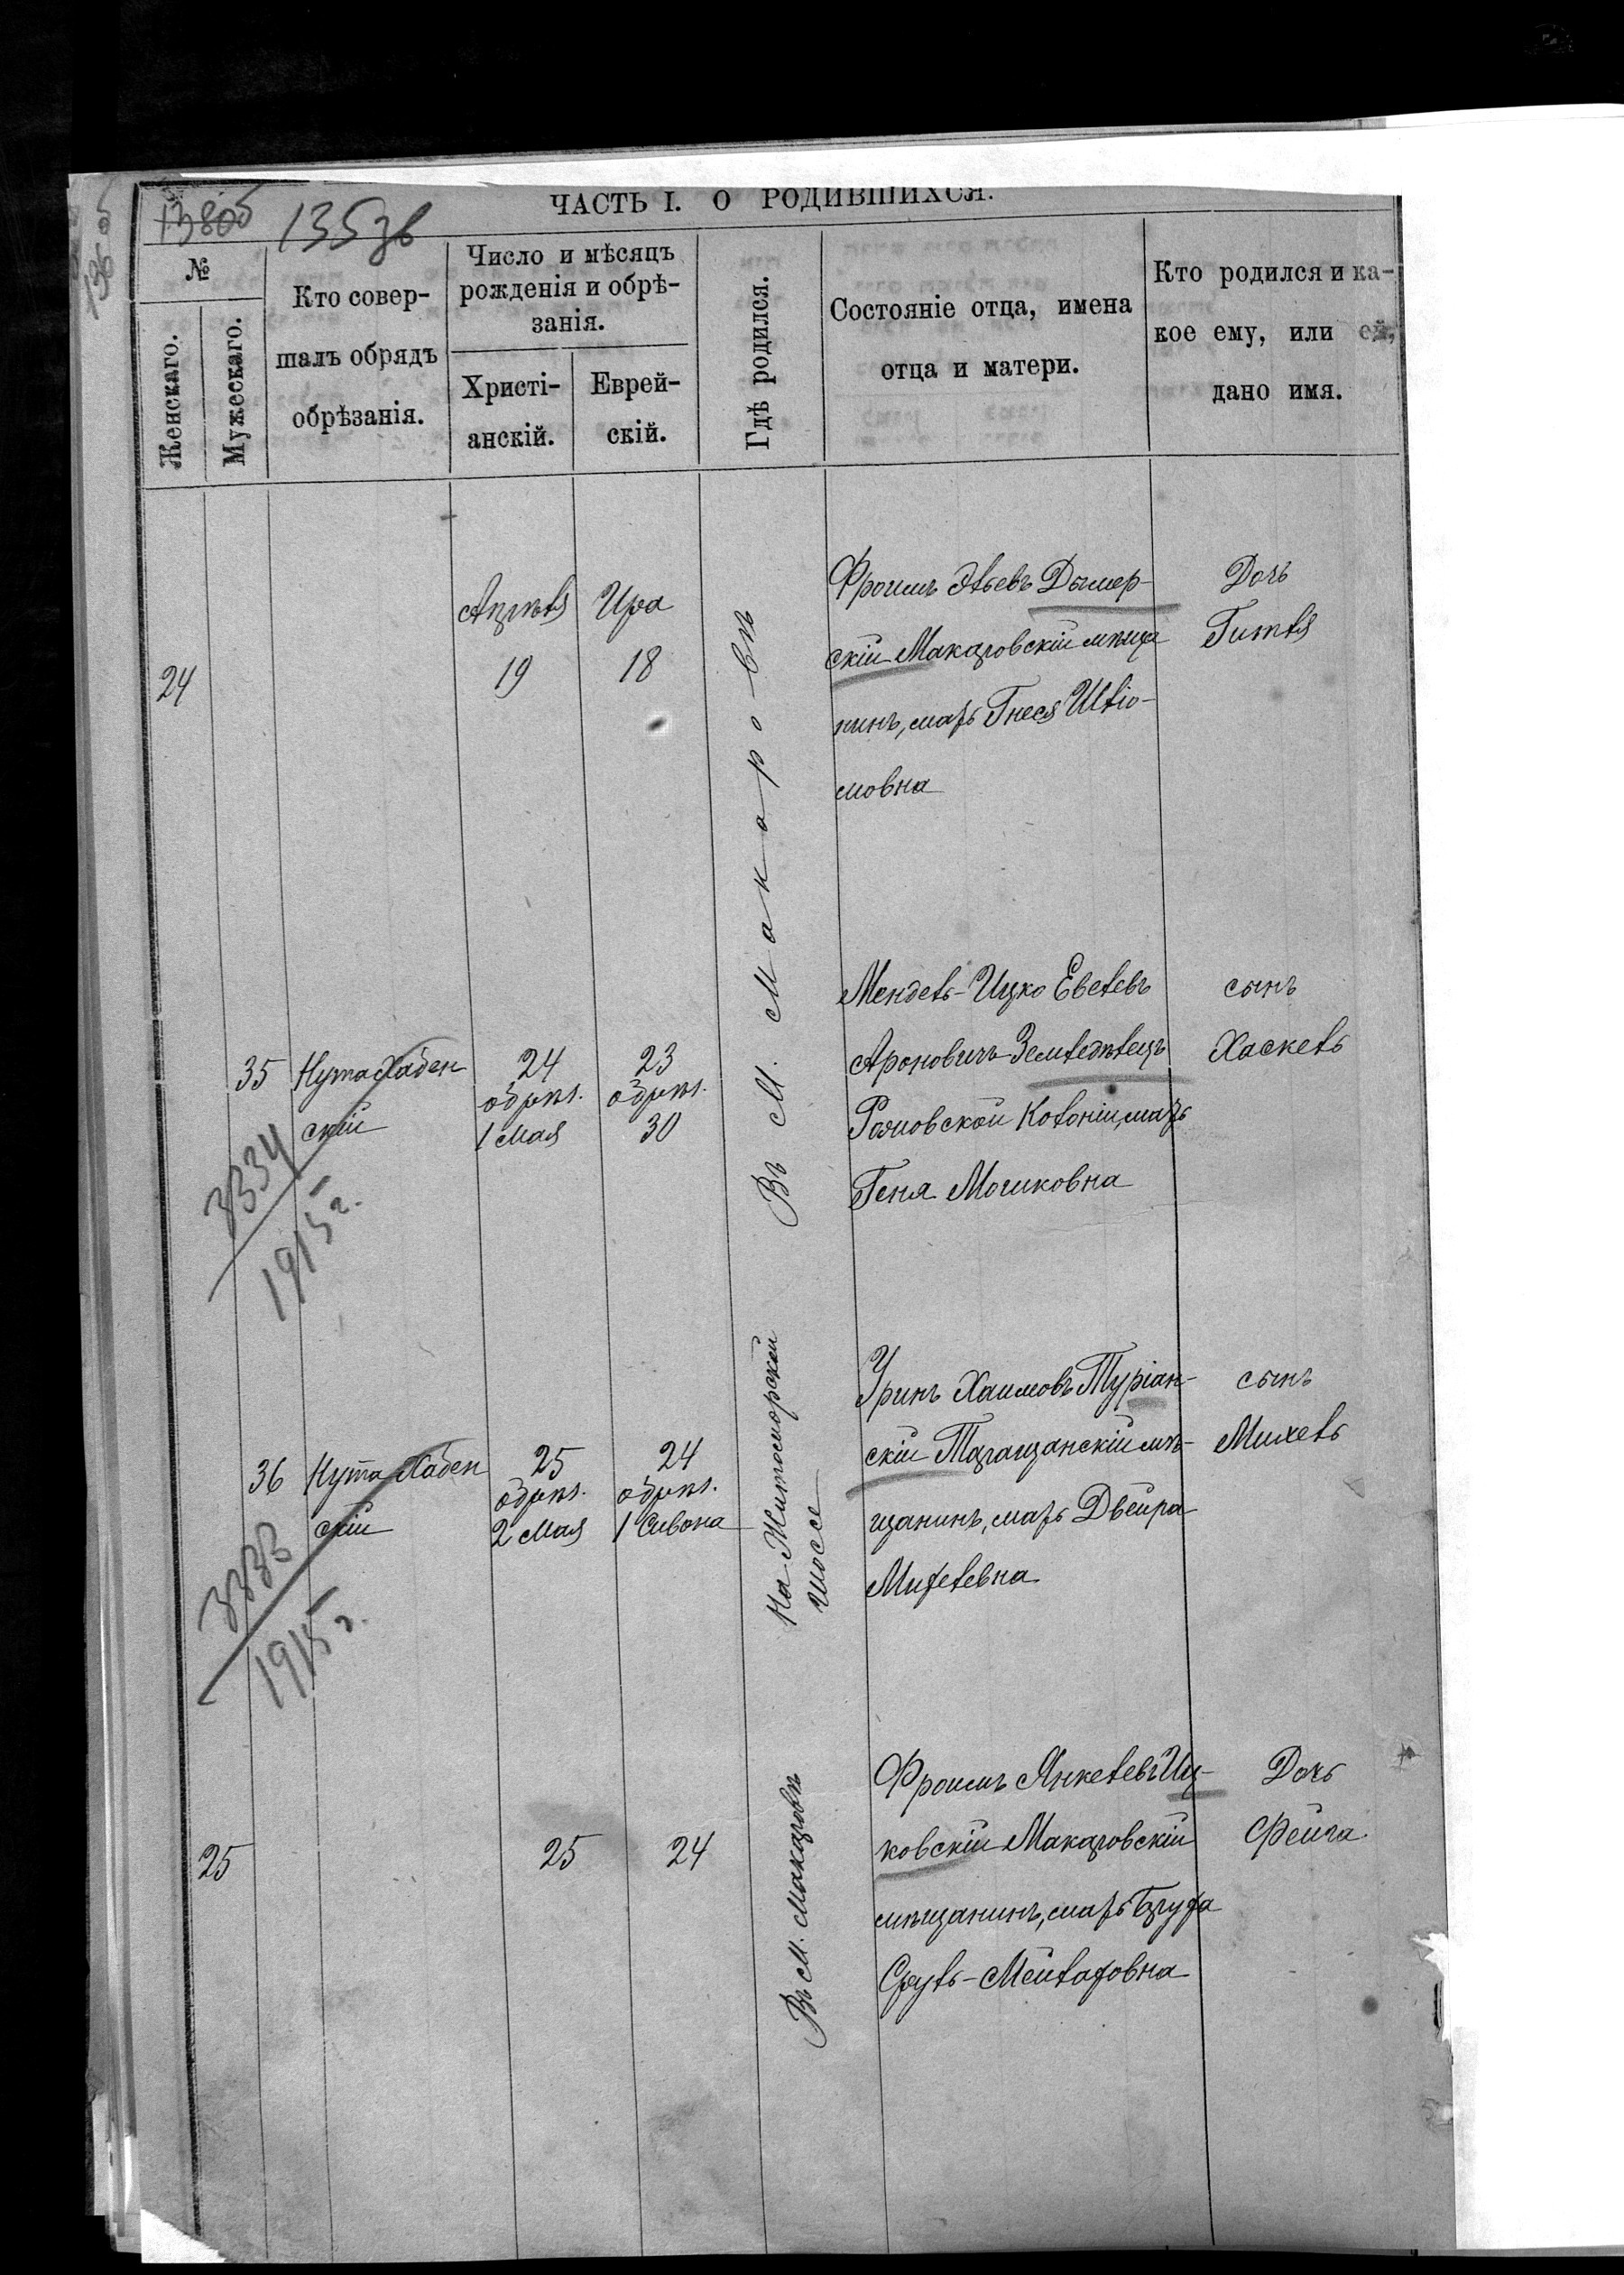 ЧАСТЬ I. О РОДИВШИХСЯ.
138об 135зв
136 об
№
Женскаго.
Мужескаго.
Кто совер-
шалъ обрядъ
обрѣзанія.
Число и мѣсяцъ
рожденія и обрѣ-
занія.
Христі-
анскій.
Еврей-
скій.
Гдѣ родился.
Состояніе отца, имена
отца и матери.
Кто родился и ка-
кое ему, или ей,
дано имя.
24
Апрѣля
19
Ира
18
Въ М. Макаровѣ
Фроимъ Эльевъ Дымер-
скій Макаровскій мѣща
нинъ, мать Гнеся Шліо-
мовна
Дочь
Гитля
35
Нута Хабен
скій
24
обрѣз.
1 Мая
23
обрѣз.
30
Мендель-Ицко Евелевъ
Ароновичъ Земледѣлецъ
Колоніи, мать
Геня Мошковна
сынъ
Хаскель
3334
1915 г.
36
Нута Хабен
скій
25
обрѣз.
2 Мая
24
обрѣз.
1 Сивона
На Житоморской
шоссе
Уринъ Хаимовъ Туріан-
скій Таращанскій мѣ-
щанинъ, мать Двейра
Михелевна
сынъ
Михель
3333
1915 г.
25
25
24
Въ М. Макаровѣ
Фроимъ Янкелевъ Иц-
ковскій Макаровскій
мѣщанинъ, мать Бруха
Сруль-Мейлаховна
Дочь
Фейга